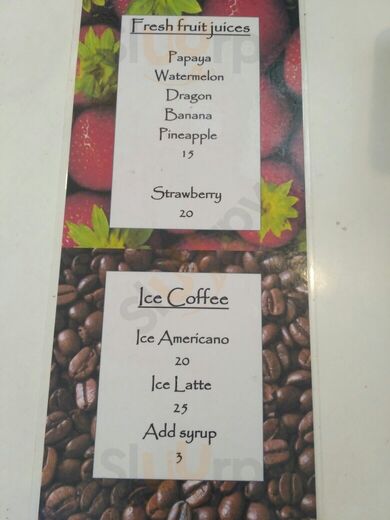 Fresh fruit juices
Papaya
Watermelon
Dragon
Banana
Pineapple
15
Strawberry
20
Ice Coffee
Ice Americano
20
Ice Latte
25
Add syrup
3